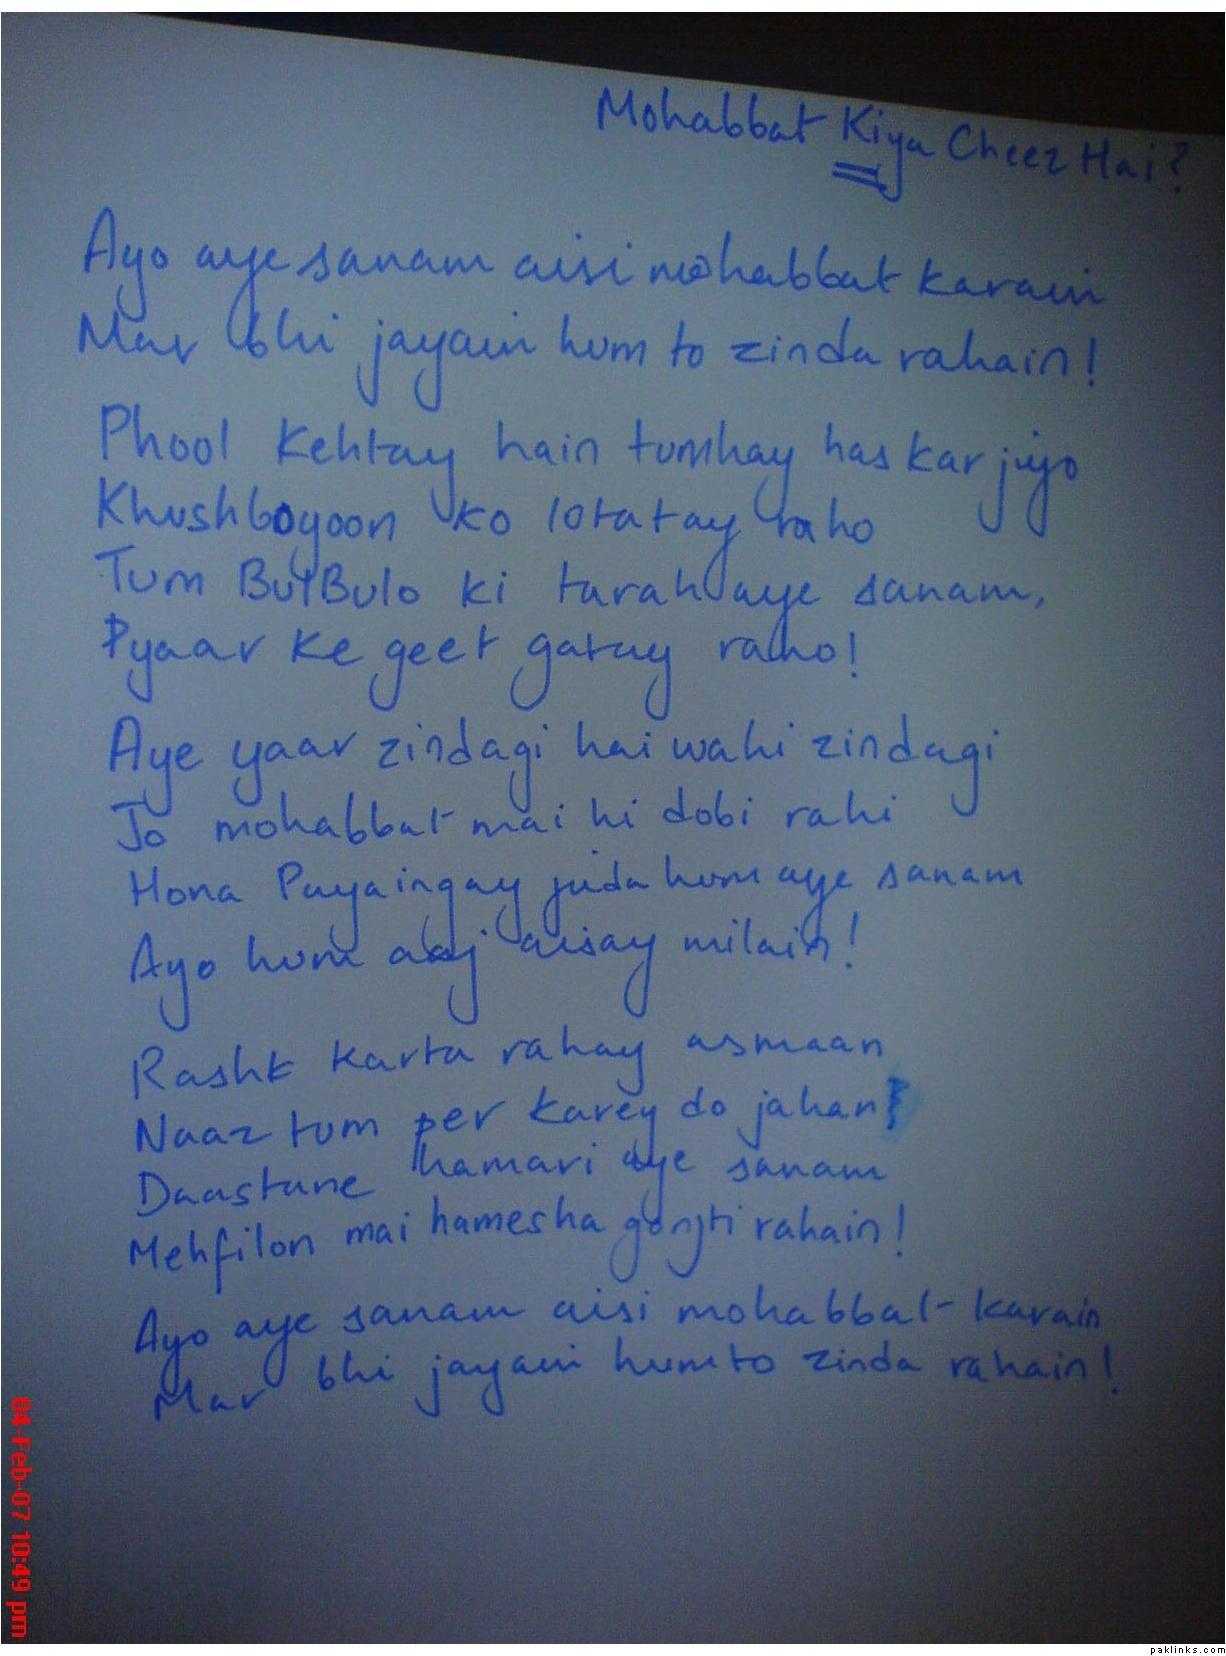 Mohabbat Kiya Cheez Hai?
Ayo aye sanam aisi mohabbat karain
Mar bhi jayain hum to zinda rahain!
Phool Kehtay hain tumhay has kar jiyo
Khushboyoon ko lotatay raho
Tum BulBulo ki tarah aye sanam,
Pyaar ke geet gatay raho!
Aye yaar zindagi hai wahi zindagi
Jo mohabbat mai hi dobi rahi
Hona Payaingay juda hum aye sanam
Ayo hum aaj aisay milain!
Rashk karta rahay asmaan
Naaz tum per karey do jahan
Daastane hamari aye sanam
Mehfilon mai hamesha gonjti rahain!
Ayo aye sanam aisi mohabbat karain
Mar bhi jayain hum to zinda rahain!
04-Feb-07 10:49 pm
paklinks.com